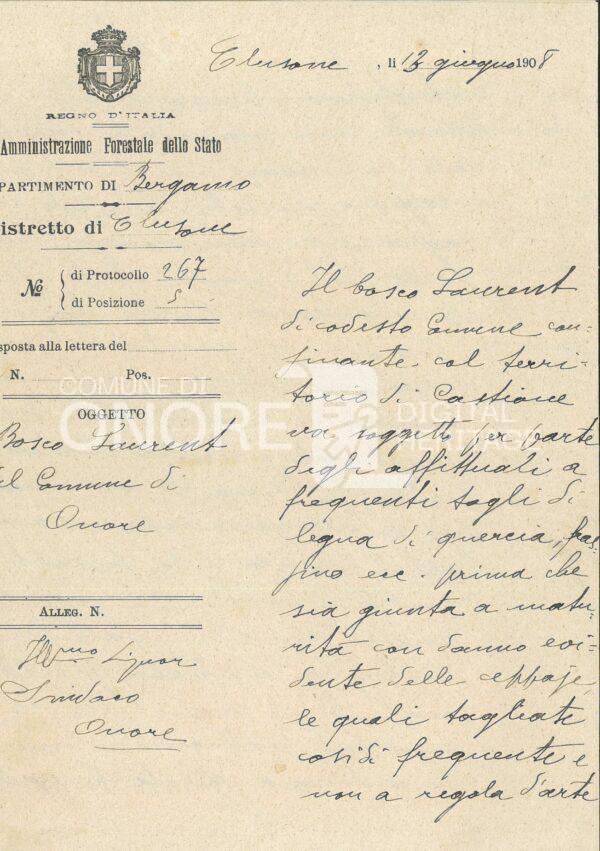 Clusone, li 13 giugno 1908
REGNO D'ITALIA
Amministrazione Forestale dello Stato
PARTIMENTO DI Bergamo
istretto di Clusone
No
di Protocollo 267
di Posizione 5
sposta alla lettera del
N. Pos.
OGGETTO
Bosco Laurent
del Comune di
Onore
ALLEG. N.
Ill.mo Signor
Sindaco
Onore
Il bosco Laurent
di codesto Comune con-
finante col terri-
torio di Castione
va soggetto per parte
degli affittuali a
frequenti tagli di
legna di quercia, fras
sino ecc. prima che
sia giunta a matu-
rità con danno evi-
dente delle ceppaje,
le quali tagliate
così di frequente e
non a regola d'arte
COMUNE DI
ONORE
DIGITAL